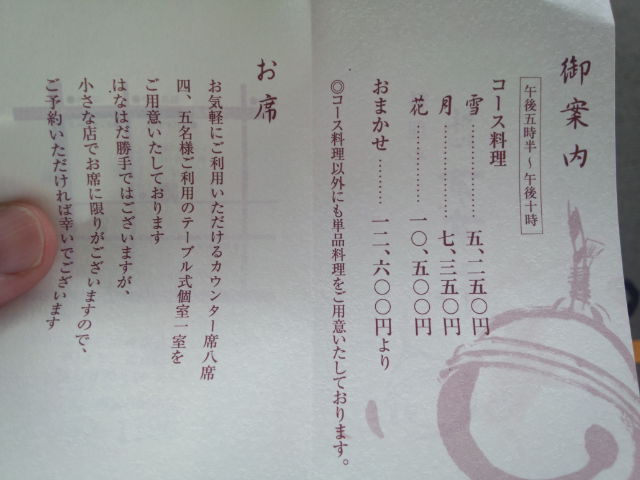 御案内
午後五時半～午後十時
コース料理
雪………………五、二五〇円
月………………七、三五〇円
花……………一〇、五〇〇円
おまかせ………一二、六〇〇円より
◎コース料理以外にも単品料理をご用意いたしております。
お席
お気軽にご利用いただけるカウンター席八席
四、五名様ご利用のテーブル式個室一室を
ご用意いたしております
はなはだ勝手ではございますが、
小さな店でお席に限りがございますので、
ご予約いただければ幸いでございます